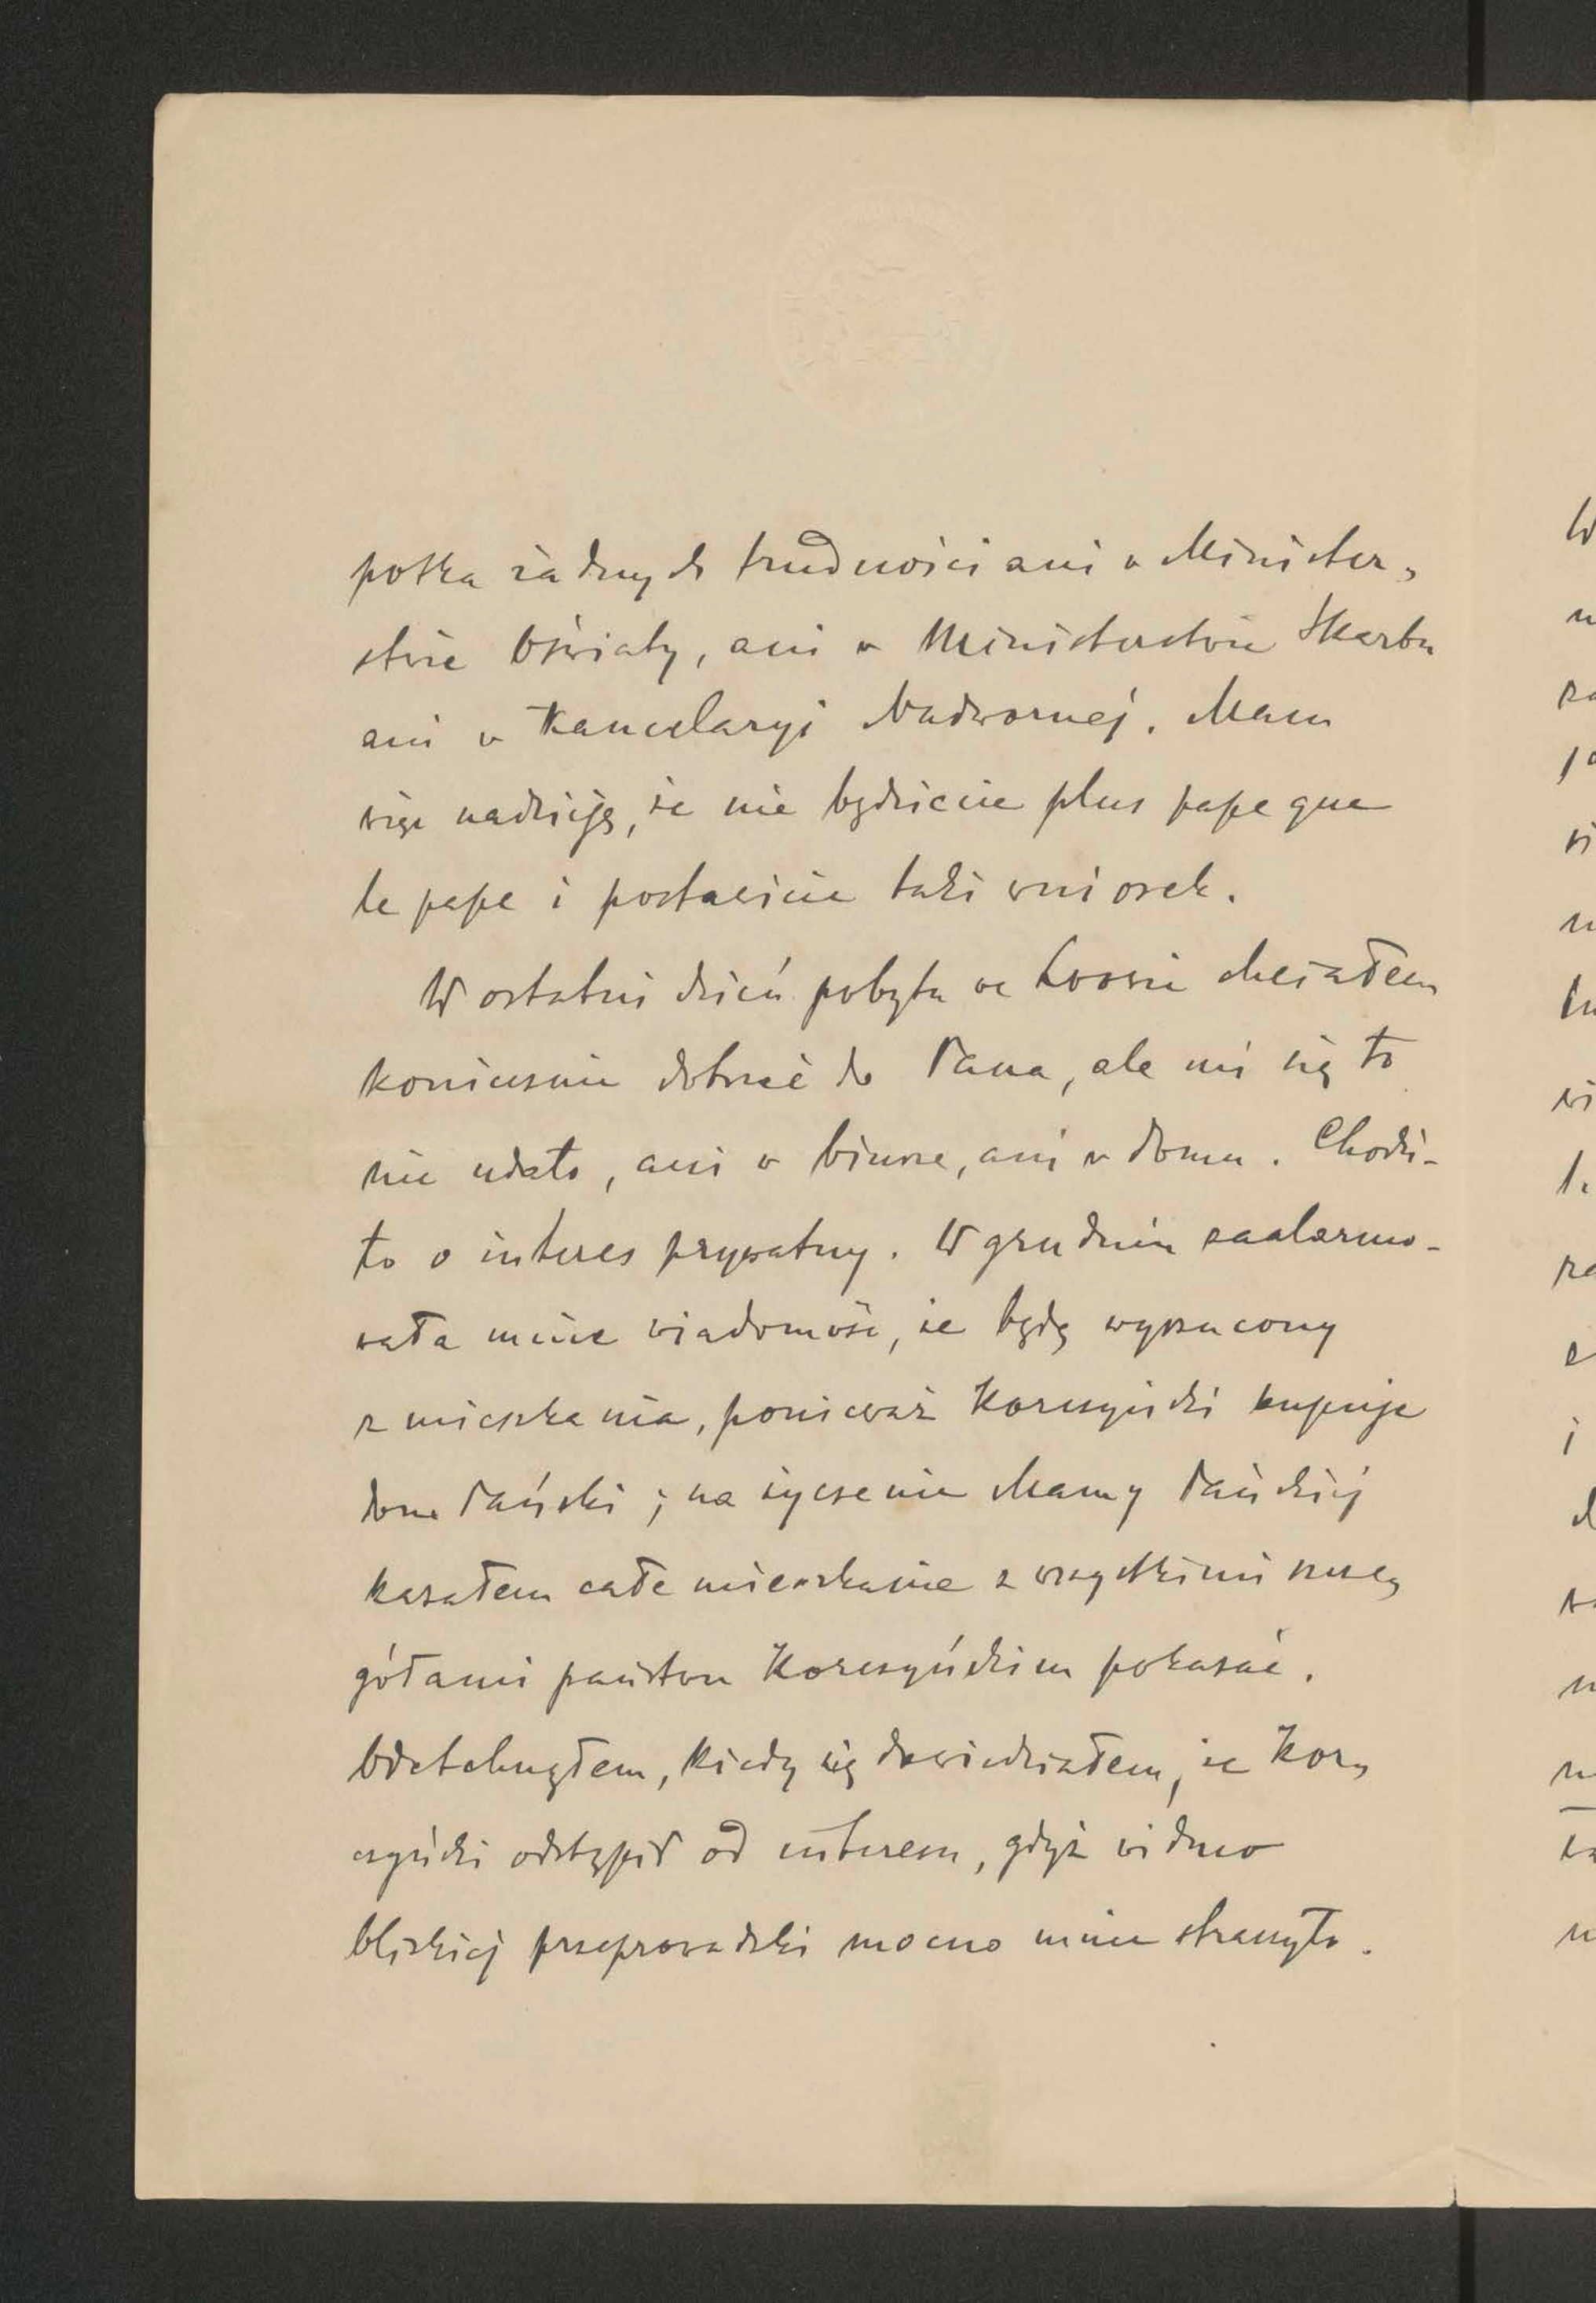 potka żadnych trudności ani w Minister-
stwie Oświaty, ani w Ministerstwie Skarbu
ani w Kancelaryi Nadwornej. Mam
więc nadzieję, że nie będziecie plus pape que
le pape i postawicie taki wniosek.
W ostatni dzień pobytu we Lwowie chciałem
koniecznie dotrzeć do Pana, ale mi się to
nie udało, ani w biurze, ani w domu. Chodzi-
ło o interes prywatny. W grudniu zaalarmo-
wała mnie wiadomość, że będę wyrzucony
z mieszkania, ponieważ Korczyński kupuje
dom Pański; na życzenie Mamy Pańskiej
kazałem całe mieszkanie z wszystkimi szcze-
gółami państwu Korczyńskim pokazać.
Odetchnąłem, kiedy się dowiedziałem, że Kor-
czyński odstąpił od interesu, gdyż widmo
bliskiej przeprowadzki mocno mnie straszyło.